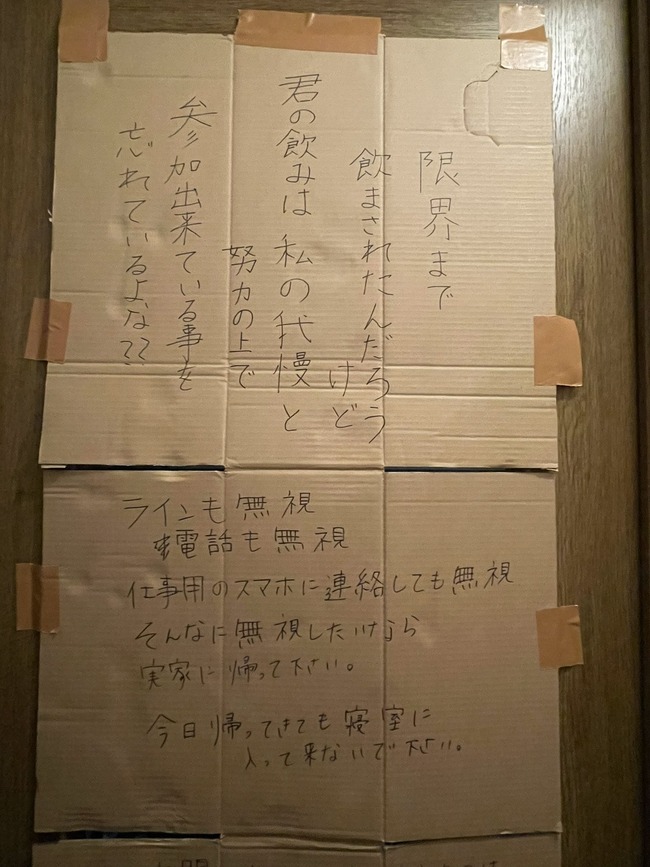 限界まで
飲まされたんだろう
けど
君の飲みは私の我慢と
努力の上で
参加出来ている事を
忘れているよな??
ラインも無視
電話も無視
仕事用のスマホに連絡しても無視
そんなに無視したいなら
実家に帰って下さい。
今日帰ってきても寝室に
入って来ないで下さい。